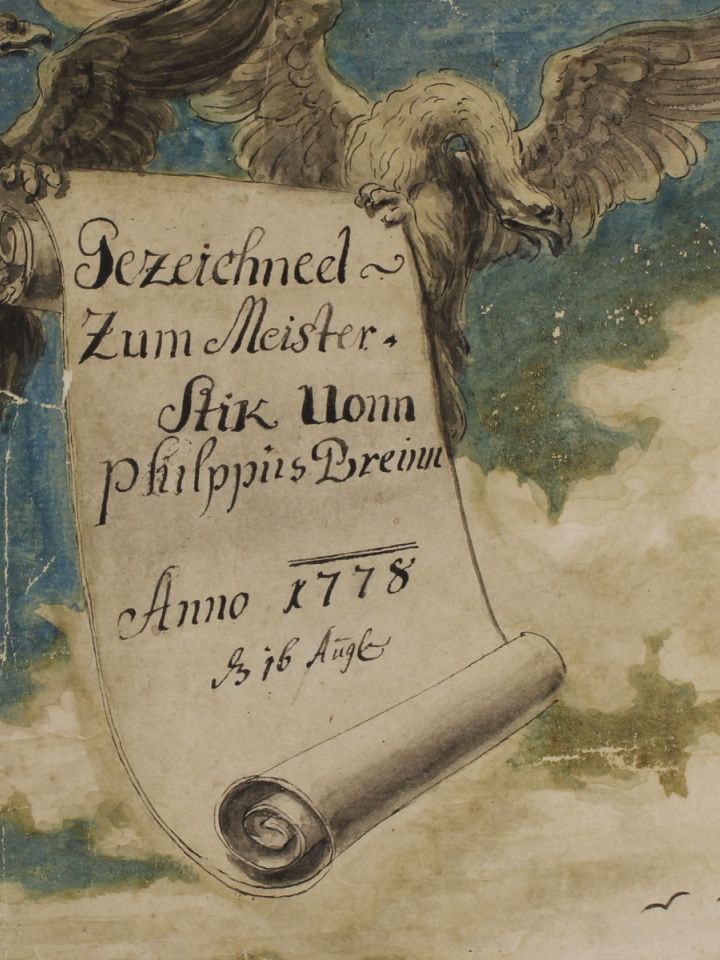 Gezeichneel ~
Zum Meister.
Stik Vonn
Philppüs Breinn
Anno 1778
16 Aũgt